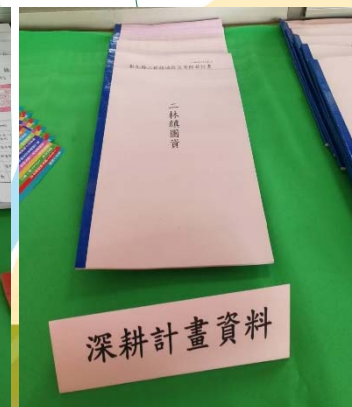 二林鎮圖資
深耕計畫資料